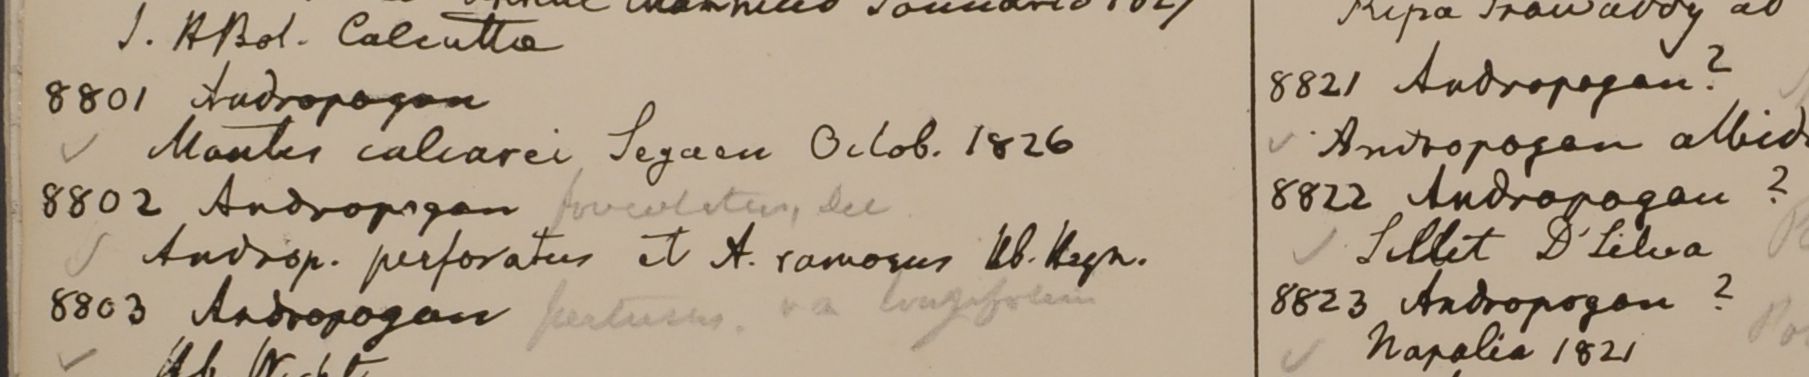 Januario 1827
I. HBot. Calcutta
8801 Andropogon
Montes calcarei Segaen Octob. 1826
8802 Andropogon foveolatus, Del
Androp. perforatus et A. ramosus Hb. Heyn.
8803 Andropogon pertusus. va longifolia
Hb Wight
Ripa Irawaddy ad
8821 Andropogon?
Andropogon albid
8822 Andropogon ?
Sillet D'Silva
8823 Andropogon ?
Napalia 1821